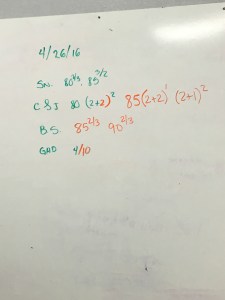 4/26/16
Sn. 80^4/3. 85^3/2
C&J 80 (2+2)^2 85(2+2)^1 (2+1)^2
B.S. 85^2/3 90^2/3
GHD 4/10